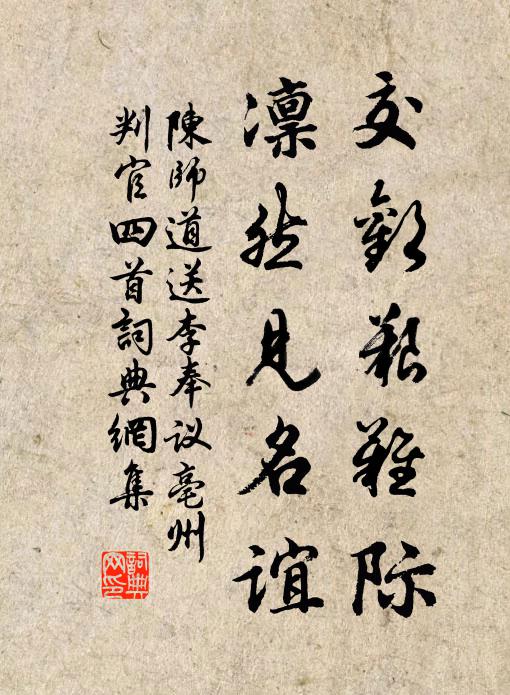 交歡艱難际
凛然見名谊
陳師道送李奉议亳州
判官四首詞典網集
詞典网印